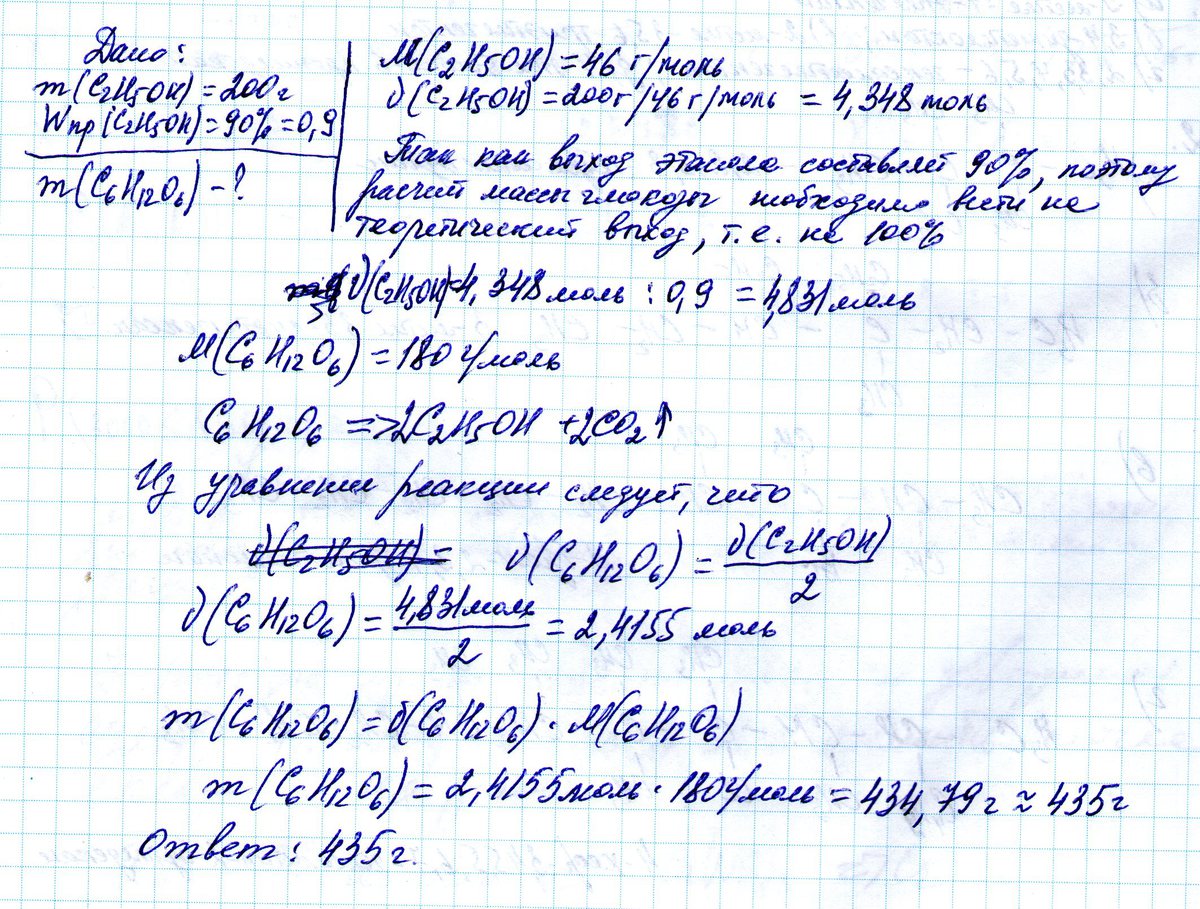 Дано:
m(C2H5OH) = 200г
Wпр(C2H5OH) = 90% = 0,9
m(C6H12O6) - ?
M(C2H5OH) = 46 г/моль
υ(C2H5OH) = 200г/46 г/моль = 4,348 моль
Так как выход этанола составляет 90%, поэтому
расчет массы глюкозы необходимо вести на
теоретический выход, т.е. на 100%
υ(C2H5OH)=4,348 моль : 0,9 = 4,831 моль
M(C6H12O6) = 180 г/моль
C6H12O6 => 2C2H5OH + 2CO2↑
Из уравнения реакции следует, что
υ(C2H5OH) = υ(C6H12O6) = υ(C2H5OH)/2
υ(C6H12O6) = 4,831 моль/2 = 2,4155 моль
m(C6H12O6) = υ(C6H12O6) · M(C6H12O6)
m(C6H12O6) = 2,4155 моль · 180 г/моль = 434,79 г ≈ 435 г
Ответ: 435 г.